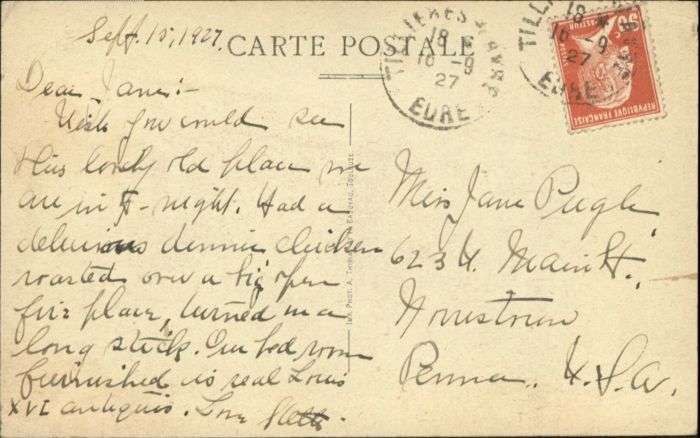 Sept. 15, 1927.
CARTE POSTALE
Dear Jane:-
Wish you could see
this lovely old place we
are in to-night. Had a
delicious dinner chicken
roasted over a big open
fire place, turned on a
long stick. Our bed room
furnished is real Louis
XVI antiques. Love
Miss Jane Pugh
623 W. Main St.,
Norristown
Penna. U.S.A.
TILLIÈRES S. AVRE
18
16 -9
27
EURE
TILLI
18
16 -9
27
EURE
REPUBLIQUE FRANÇAISE